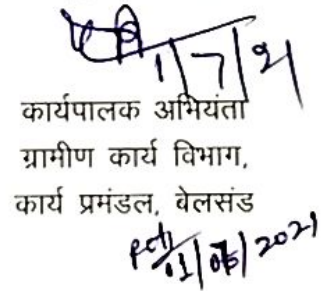 1/7/21
कार्यपालक अभियंता
ग्रामीण कार्य विभाग,
कार्य प्रमंडल, बेलसंड
01/07/2021